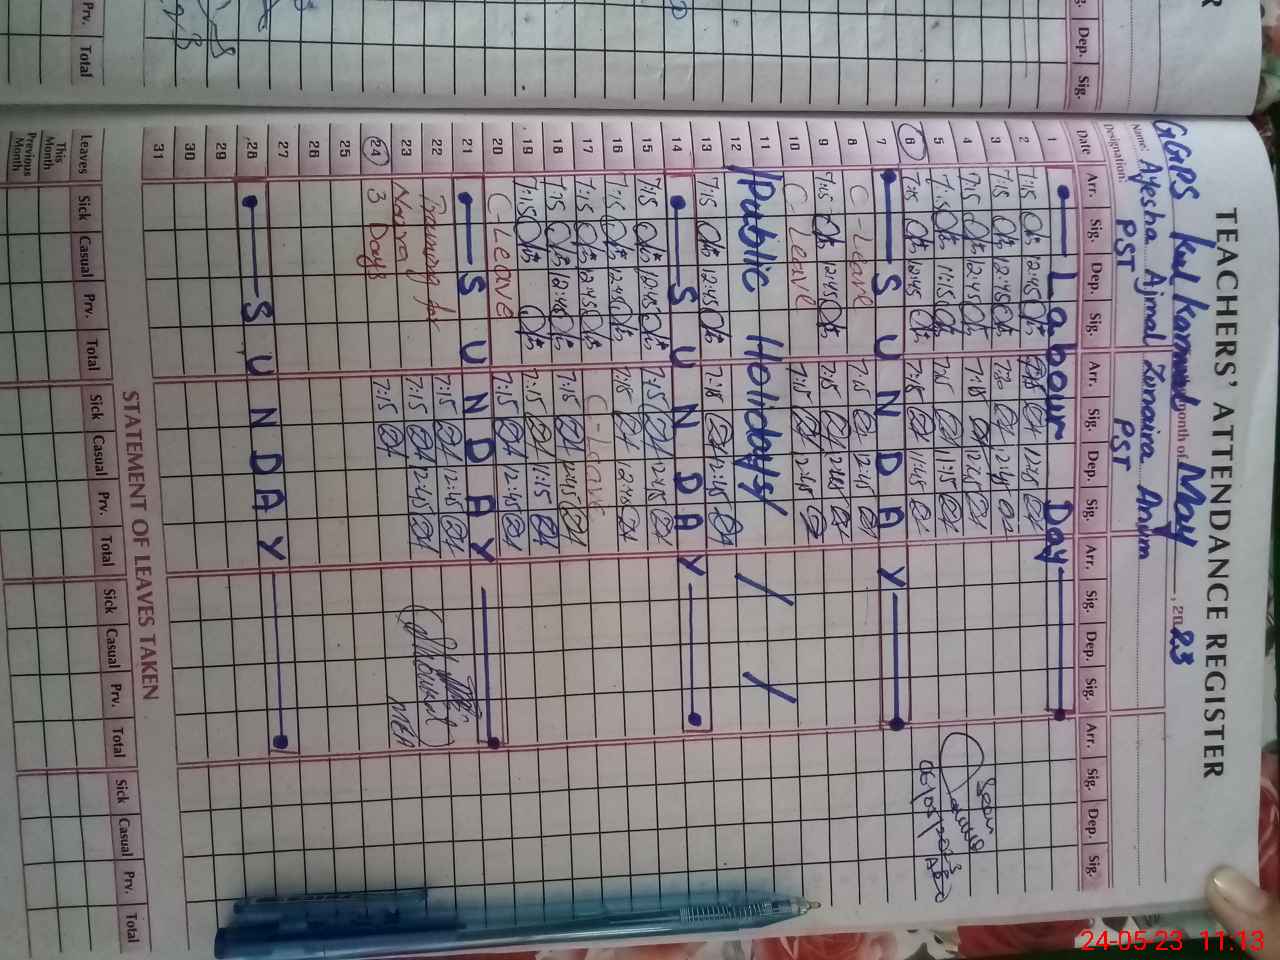 TEACHERS' ATTENDANCE REGISTER
GGPS month of May, 2023
Name: Ayesha Ajmal Zunaira Anjum
Designation: PST PST
Date Arr. Sig. Dep. Sig. Arr. Sig. Dep. Sig. Arr. Sig. Dep. Sig. Arr. Sig. Dep. Sig.
1 Labour Day
2 7:15 12:45
3 7:15 12:45 7:20
4 7:15 12:45 7:18 12:45
5 7:15 11:15 7:15 11:15
6 7:15 12:45 7:15 11:45
7 SUNDAY
8 C-Leave 7:15 12:45
9 7:15 12:45 7:15 12:45
10 C-Leave 7:15 12:45
11 Public Holidays
12
13 7:15 12:45 7:18 12:45
14 SUNDAY
15 7:15 12:45 7:15 12:45
16 7:15 12:45 7:15 12:45
17 7:15 12:45 C-Leave
18 7:15 12:45 7:15 12:45
19 7:15 7:15 11:15
20 C-Leave 7:15 12:45
21 SUNDAY
22 Training for 7:15 12:45
23 7:15 12:45
24 3 Days 7:15
25
26
27
28 SUNDAY
29
30
31
STATEMENT OF LEAVES TAKEN
Leaves Sick Casual Prv. Total Sick Casual Prv. Total Sick Casual Prv. Total Sick Casual Prv. Total
This Month
Previous Month
Seen
MEA
Dep. Sig.
Prv. Total
24-05-23 11:13